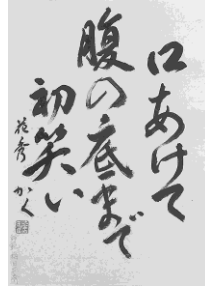 口あけて
腹の底まで
初笑い
花秀かく